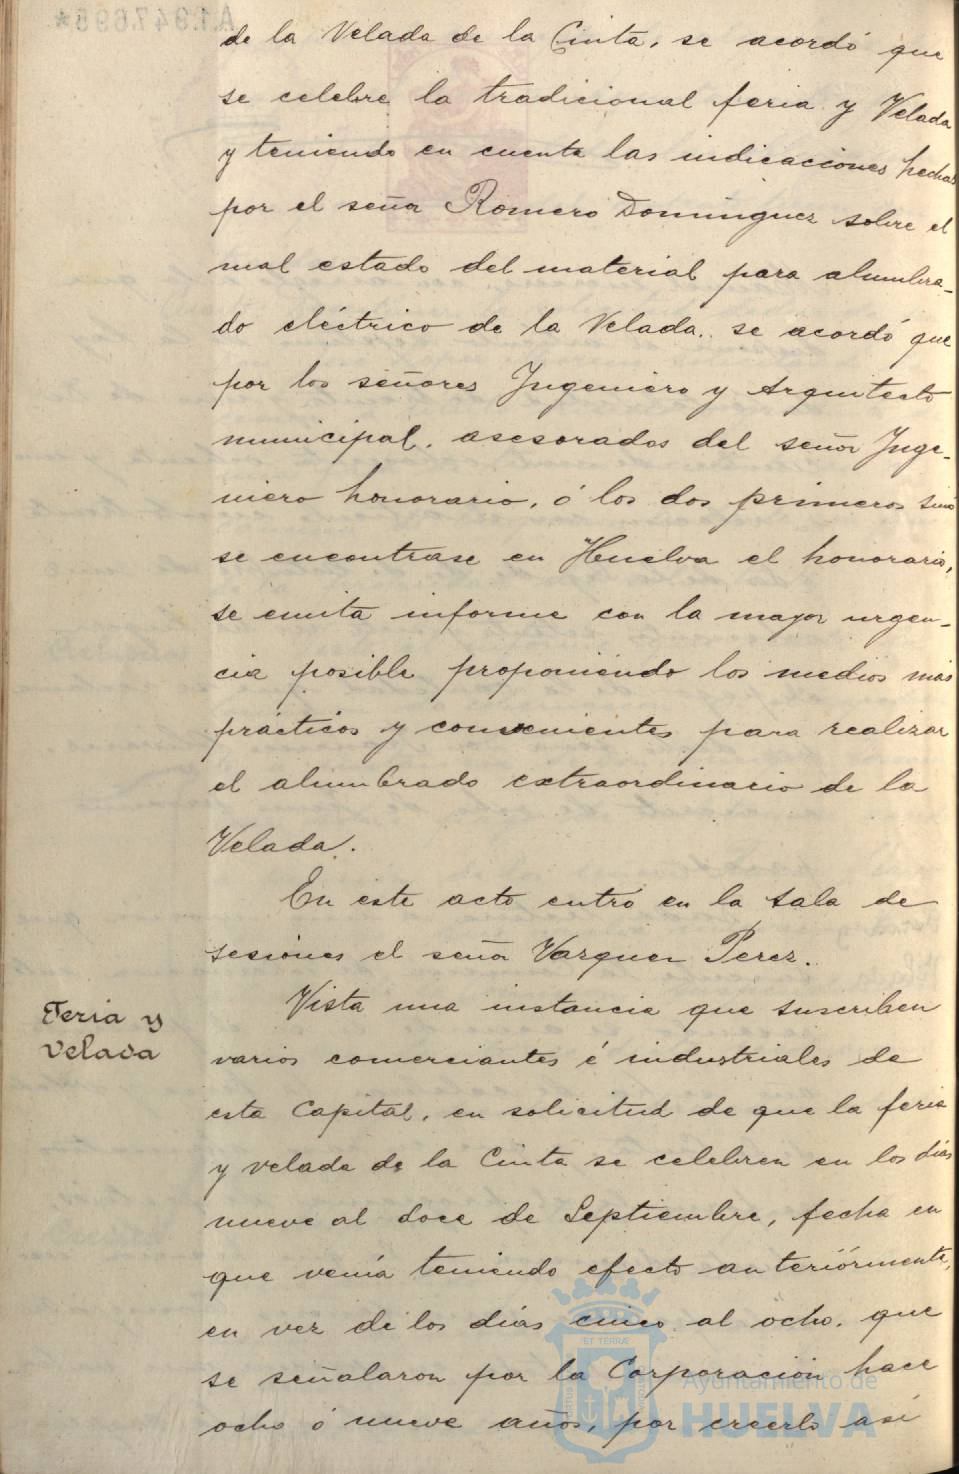 de la Velada de la Cinta, se acordó que
se celebre la tradicional feria y Velada
y teniendo en cuenta las indicaciones hechas
por el señor Romero Dominguez sobre el
mal estado del material para alumbra-
do eléctrico de la Velada, se acordó que
por los señores Ingeniero y Arquitecto
municipal, asesorados del señor Inge-
niero honorario, ó los dos primeros sinó
se encontrase en Huelva el honorario,
se emita informe con la mayor urgen-
cia posible proponiendo los medios mas
prácticos y convenientes para realizar
el alumbrado extraordinario de la
Velada.
En este acto entró en la sala de
sesiones el señor Vazquez Perez.
Feria y
Velada
Vista una instancia que suscriben
varios comerciantes é industriales de
esta Capital, en solicitud de que la feria
y velada de la Cinta se celebren en los días
nueve al doce de Septiembre, fecha en
que venía teniendo efecto anteriormente,
en vez de los días cinco al ocho, que
se señalaron por la Corporación hace
ocho ó nueve años, por creerlo así
Ayuntamiento de
HUELVA